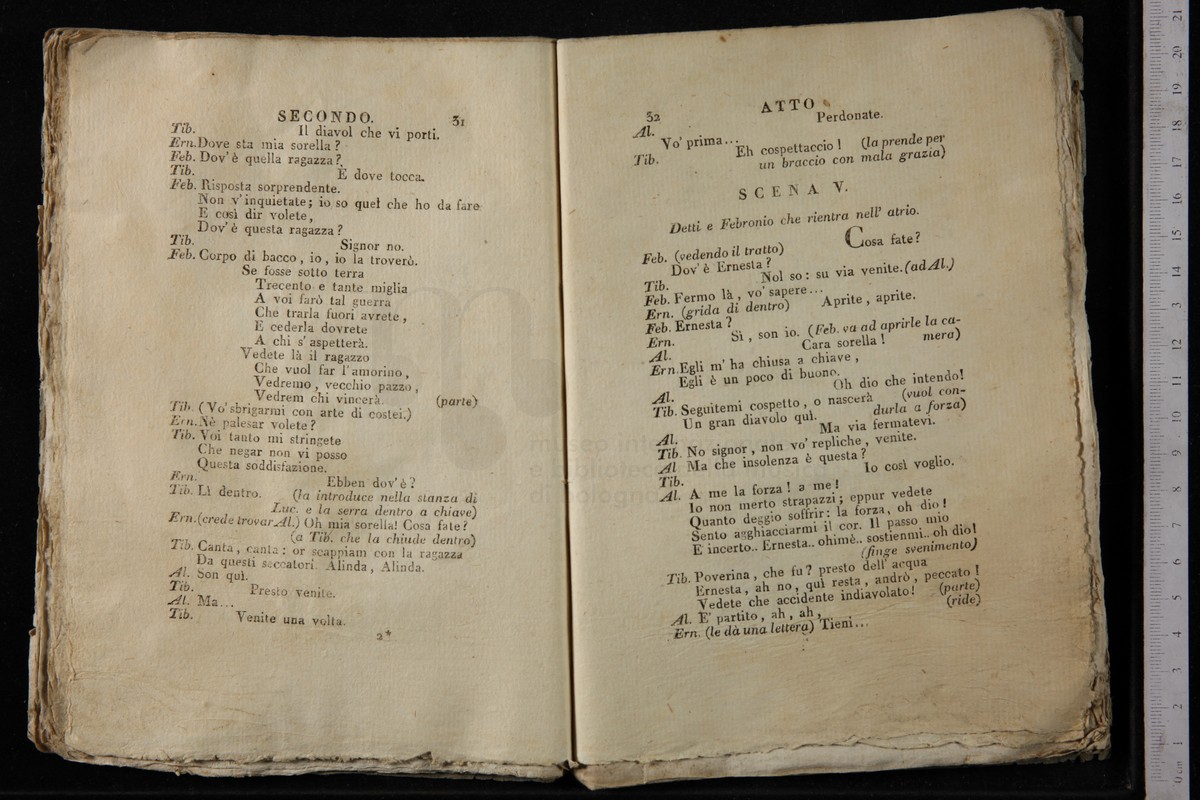 SECONDO. 31
Tib. Il diavol che vi porti.
Ern. Dove sta mia sorella?
Feb. Dov'è quella ragazza?
Tib. E dove tocca.
Feb. Risposta sorprendente.
Non v'inquietate; io so quel che ho da fare
E così dir volete,
Dov'è questa ragazza?
Tib. Signor no.
Feb. Corpo di bacco, io, io la troverò.
Se fosse sotto terra
Trecento e tante miglia
A voi farò tal guerra
Che trarla fuori avrete,
E cederla dovrete
A chi s'aspetterà.
Vedete là il ragazzo
Che vuol far l'amorino,
Vedremo, vecchio pazzo,
Vedrem chi vincerà. (parte)
Tib. (Vo'sbrigarmi con arte di costei.)
Ern. Nè palesar volete?
Tib. Voi tanto mi stringete
Che negar non vi posso
Questa soddisfazione.
Ern. Ebben dov'è?
Tib. Lì dentro. (la introduce nella stanza di
Luc. e la serra dentro a chiave)
Ern. (crede trovar Al.) Oh mia sorella! Cosa fate?
(a Tib. che la chiude dentro)
Tib. Canta, canta: or scappiam con la ragazza
Da questi seccatori. Alinda, Alinda.
Al. Son quì.
Tib. Presto venite.
Al. Ma...
Tib. Venite una volta.
2*
32 ATTO
Al. Perdonate.
Vo' prima...
Tib. Eh cospettaccio! (la prende per
un braccio con mala grazia)
SCENA V.
Detti e Febronio che rientra nell' atrio.
Feb. (vedendo il tratto) Cosa fate?
Dov'è Ernesta?
Tib. Nol so: su via venite. (ad Al.)
Feb. Fermo là, vo' sapere...
Ern. (grida di dentro) Aprite, aprite.
Feb. Ernesta?
Ern. Sì, son io. (Feb. va ad aprirle la ca-
Al. Cara sorella! mera)
Ern. Egli m'ha chiusa a chiave,
Egli è un poco di buono.
Al. Oh dio che intendo!
Tib. Seguitemi cospetto, o nascerà (vuol con-
Un gran diavolo quì. durla a forza)
Al. Ma via fermatevi.
Tib. No signor, non vo' repliche, venite.
Al Ma che insolenza è questa?
Tib. Io così voglio.
Al. A me la forza! a me!
Io non merto strapazzi; eppur vedete
Quanto deggio soffrir: la forza, oh dio!
Sento agghiacciarmi il cor. Il passo mio
E incerto.. Ernesta.. ohimè.. sostienmi.. oh dio!
(finge svenimento)
Tib. Poverina, che fu? presto dell' acqua
Ernesta, ah no, quì resta, andrò, peccato!
Vedete che accidente indiavolato! (parte)
Al. E' partito, ah, ah, (ride)
Ern. (le dà una lettera) Tieni...